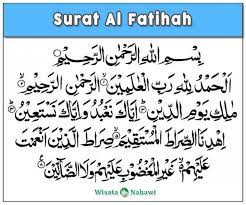 Surat Al Fatihah
بِسْمِ اللّٰهِ الرَّحْمٰنِ الرَّحِيْمِ
اَلْحَمْدُ لِلّٰهِ رَبِّ الْعٰلَمِيْنَ ۝ الرَّحْمٰنِ الرَّحِيْمِ ۝
مٰلِكِ يَوْمِ الدِّيْنِ ۝ اِيَّاكَ نَعْبُدُ وَاِيَّاكَ نَسْتَعِيْنُ ۝
اِهْدِنَا الصِّرَاطَ الْمُسْتَقِيْمَ ۝ صِرَاطَ الَّذِيْنَ اَنْعَمْتَ
عَلَيْهِمْ ۝ غَيْرِ الْمَغْضُوْبِ عَلَيْهِمْ وَلَا الضَّاۤلِّيْنَ ۝
Wisata Nabawi